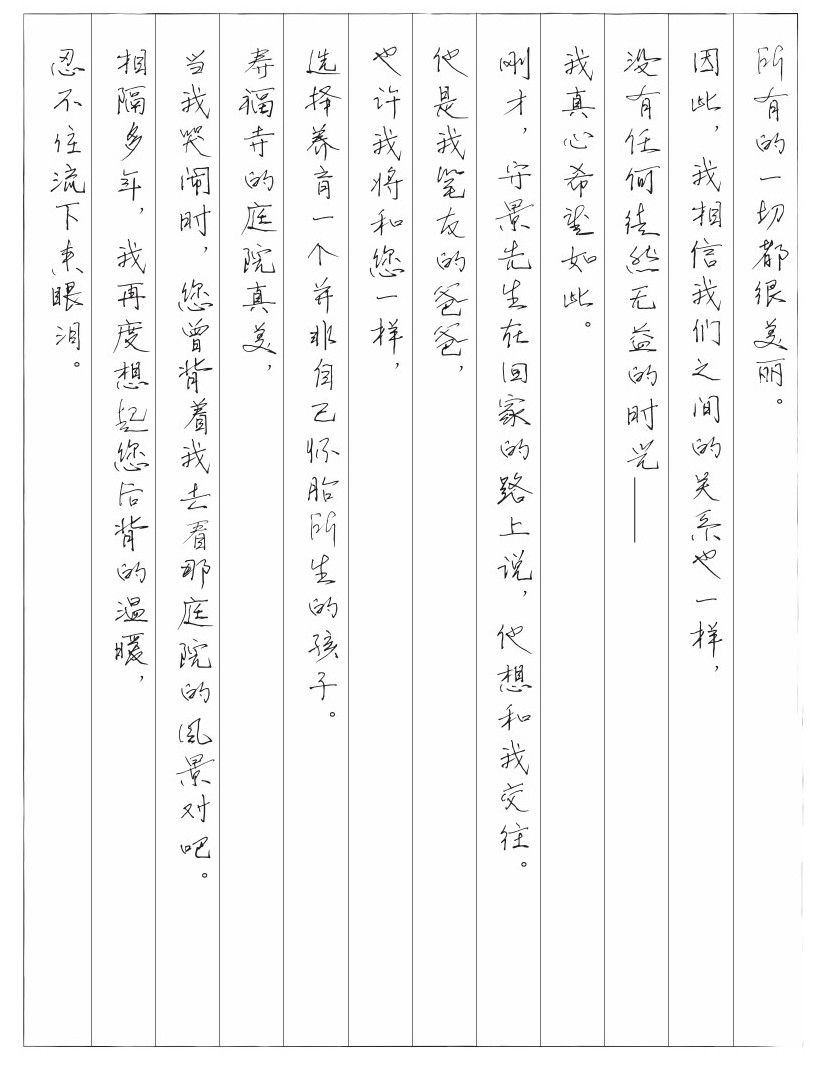 所有的一切都很美丽。
因此，我相信我们之间的关系也一样，
没有任何徒然无益的时光——
我真心希望如此。
刚才，守景先生在回家的路上说，他想和我交往。
他是我笔友的爸爸，
也许我将和您一样，
选择养育一个并非自己怀胎所生的孩子。
寿福寺的庭院真美，
当我哭闹时，您曾背着我去看那庭院的风景对吧。
相隔多年，我再度想起您后背的温暖，
忍不住流下来眼泪。